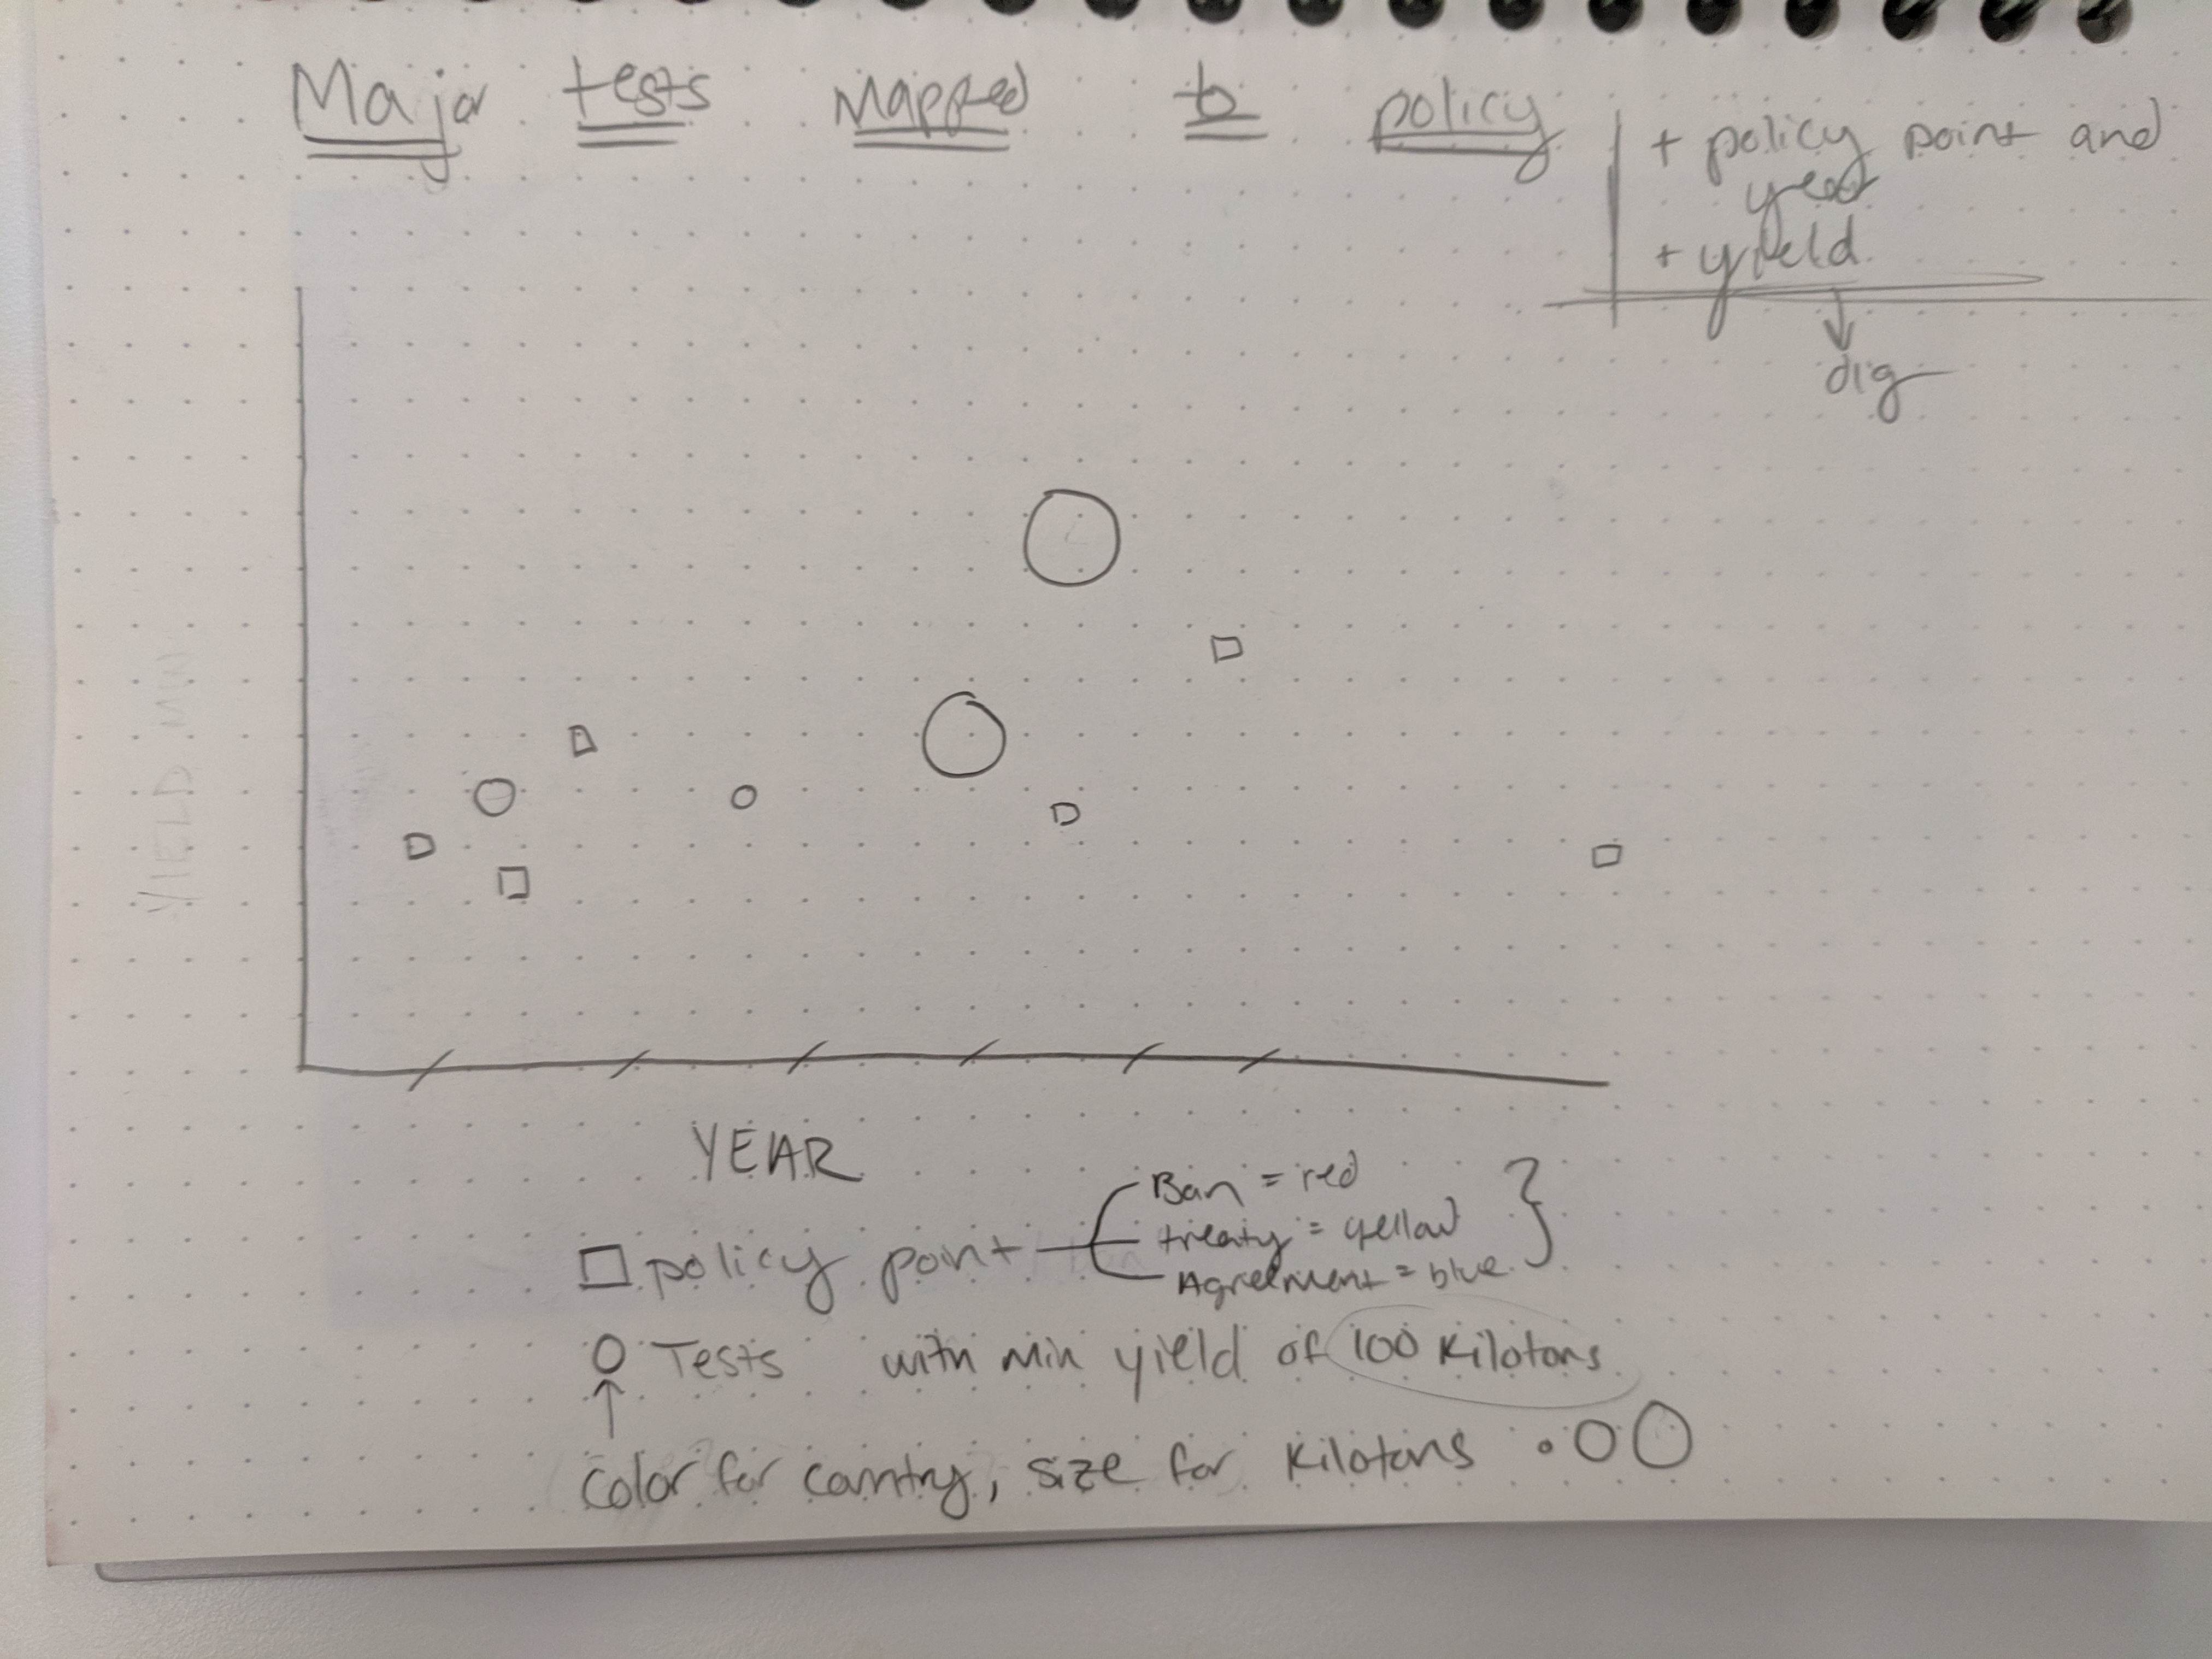 Major tests Mapped to policy
+ policy point and
year
+ yield
dig
YIELD
YEAR
policy point
Ban = red
treaty = yellow
Agreement = blue
?
Tests with min yield of 100 kilotons
color for country, size for kilotons